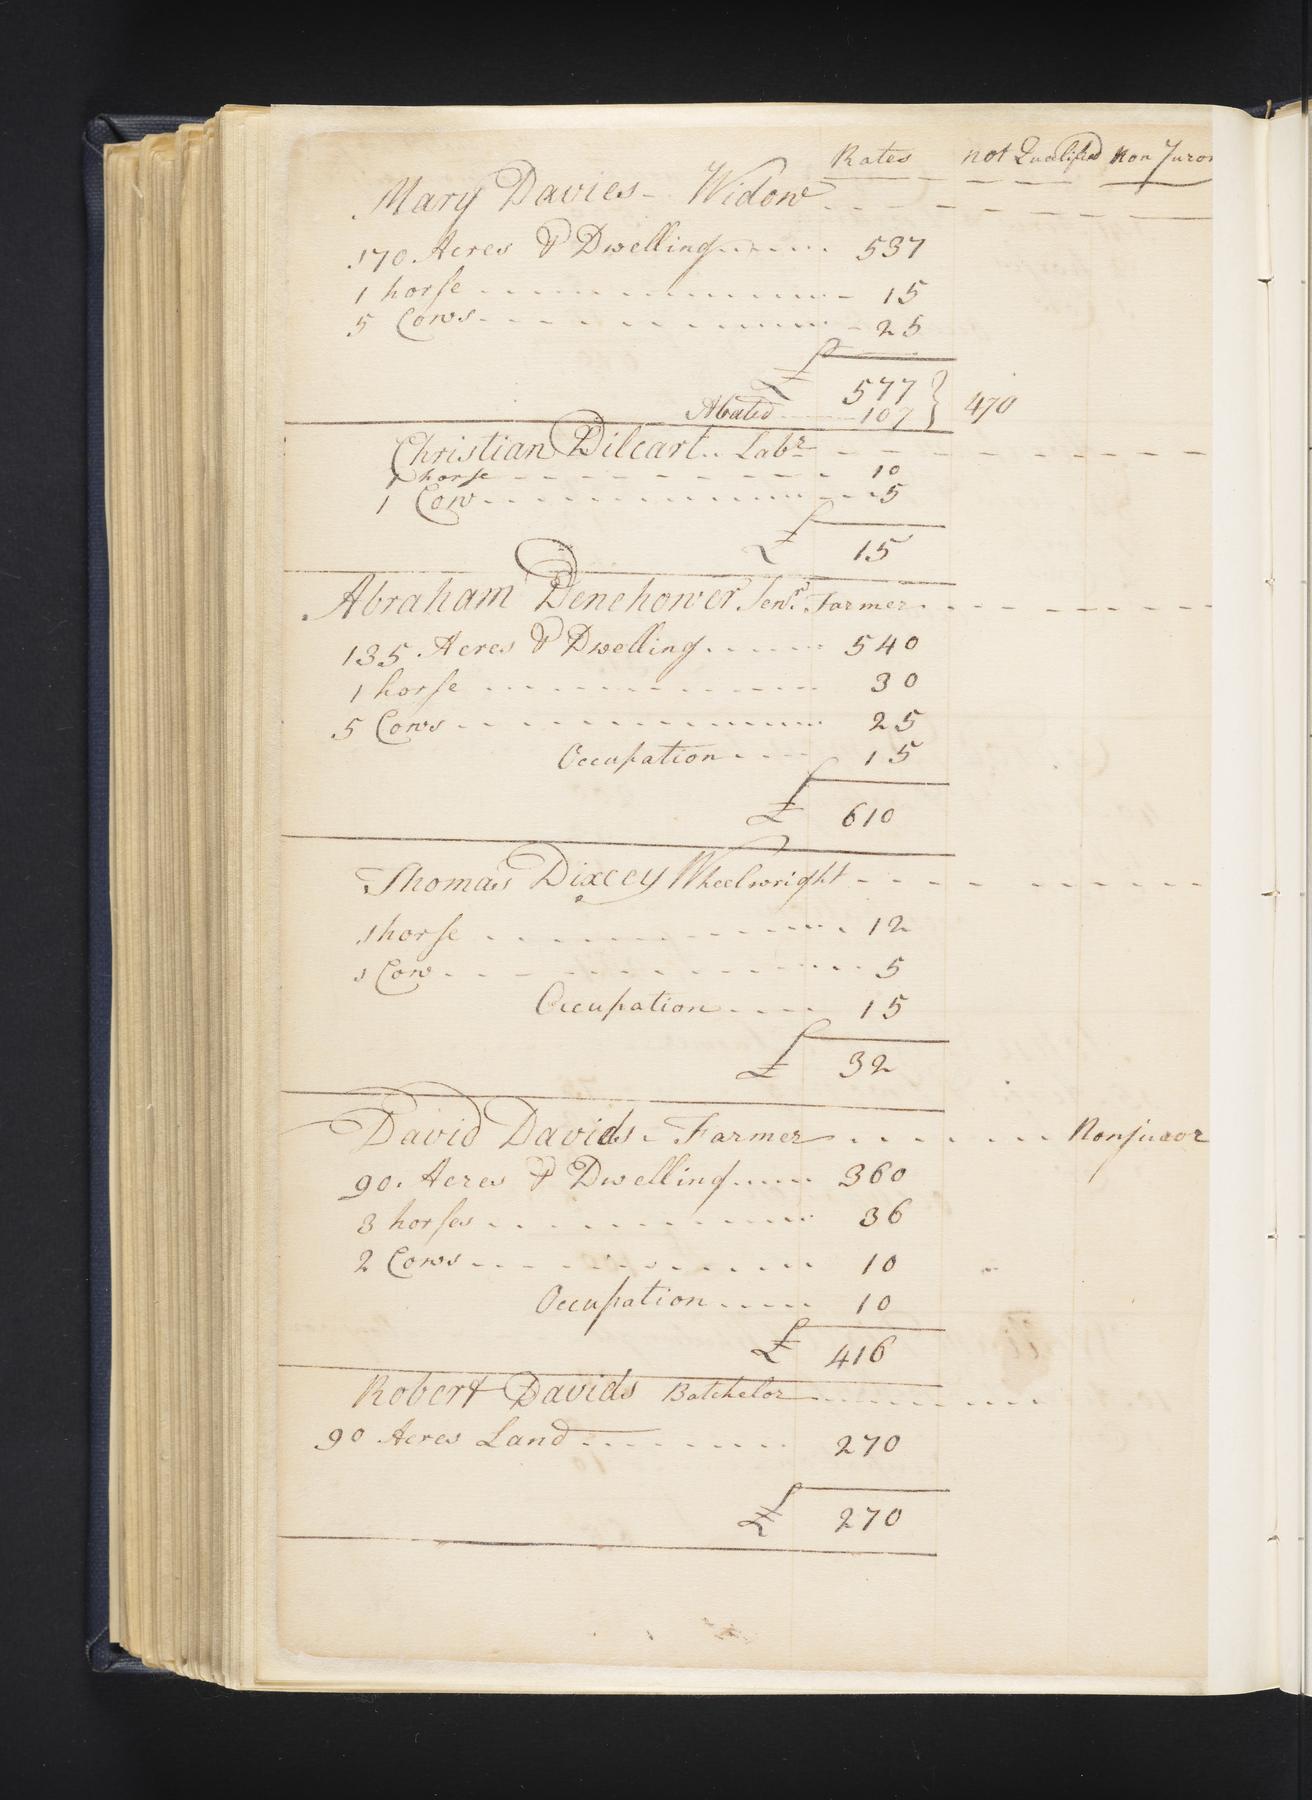 Rates not Qualified Non Juror
Mary Davies - Widow
170 Acres & Dwelling 537
1 horse 15
5 Cows 25
£ 577
Abated 107 } 470
Christian Dilcart Labr
1 horse 10
1 Cow 5
£ 15
Abraham Denehower Senr. Farmer
135 Acres & Dwelling 540
1 horse 30
5 Cows 25
Occupation 15
£ 610
Thomas Dixcey Wheelwright
1 horse 12
1 Cow 5
Occupation 15
£ 32
David Davids - Farmer Nonjuror
90 Acres & Dwelling 360
3 horses 36
2 Cows 10
Occupation 10
£ 416
Robert Davids Batchelor
90 Acres Land 270
£ 270